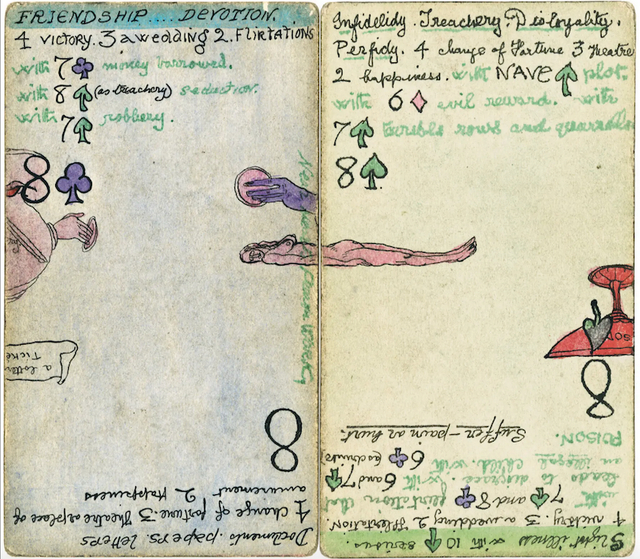 FRIENDSHIP.... DEVOTION.
4 VICTORY. 3 a wedding 2. FLIRTATIONS
with 7♣ money borrowed.
with 8♠ (as treachery) seduction.
with 7♠ robbery.
8♣
a lotte
Ticke
8
Documents. papers. letters
4 change of fortune. 3 Theatre or place of
amusement 2 Happiness
Infidelidy. Treachery. Disloyality.
Perfidy. 4 change of Fortune 3 Theatre
2 happiness. with NAVE ♠ plot.
with 6♦ evil reward. with
7♠ terrible rows and quarrels
8♠
8
Slight illness with 10 ♠ serious.
4 victory. 3 a wedding 2 flirtation
with 7♠ and 8♣ flirtation that
leads to disgrace. with 6 and 7♠
an illegal child. with 6♣
POISON.
Suffer - pain or hurt.